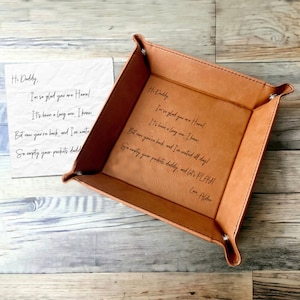 Hi Daddy,
I'm so glad you are Home!
It's been a long one, I know,
But now you're back, and I've waited
So empty your pockets daddy
Hi Daddy,
I'm so glad you are Home!
It's been a long one, I know,
But now you're back, and I've waited all day!
So empty your pockets daddy, and let's PLAY!
Love,